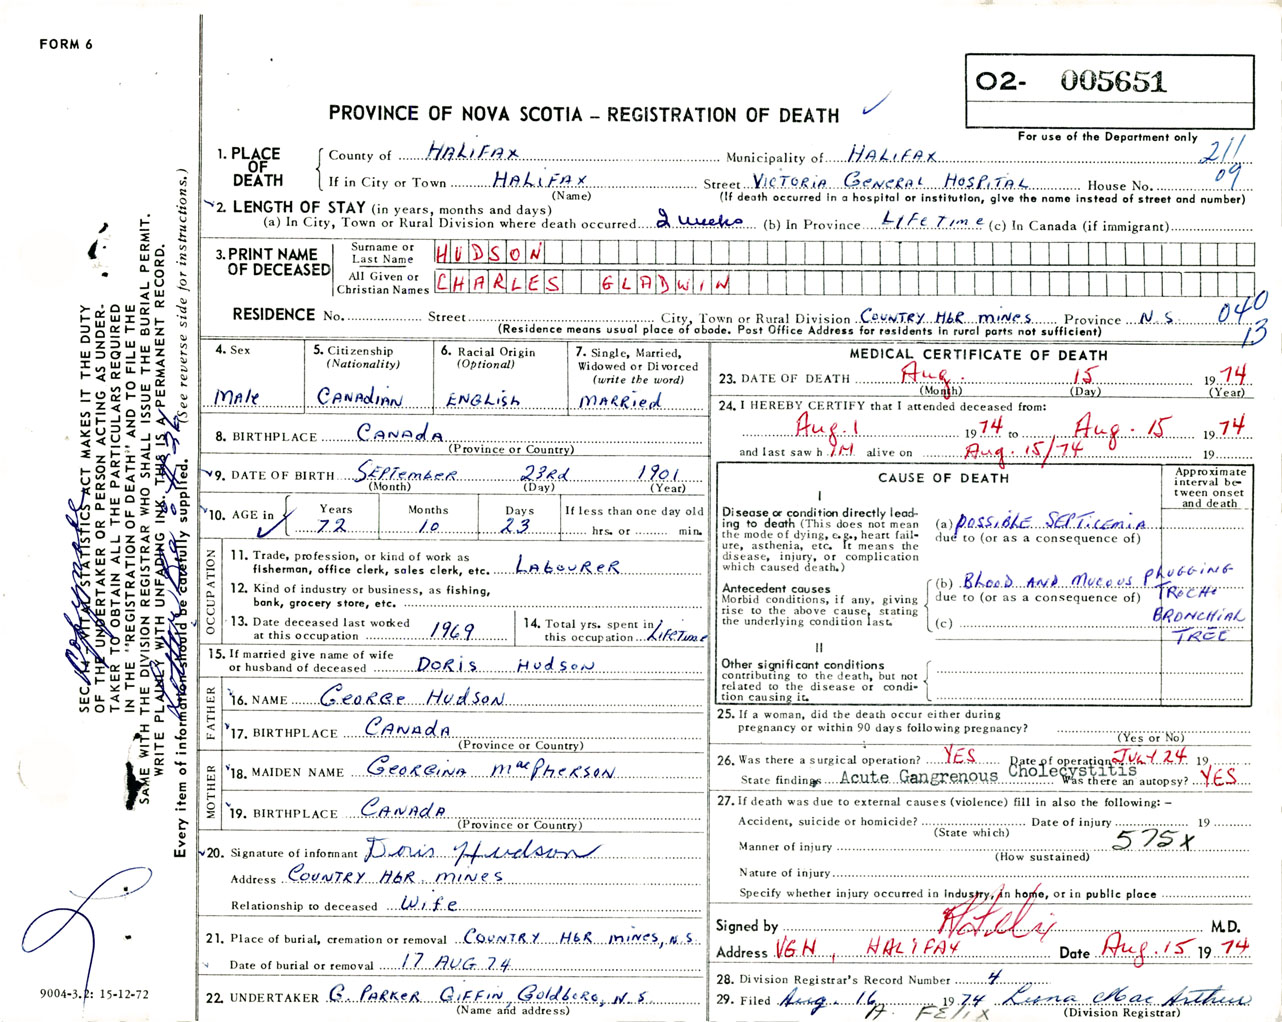 FORM 6
O2- 005651
PROVINCE OF NOVA SCOTIA – REGISTRATION OF DEATH
For use of the Department only
211
09
1. PLACE OF DEATH
County of HALIFAX Municipality of HALIFAX
If in City or Town HALIFAX Street VICTORIA GENERAL HOSPITAL House No.
(Name) (If death occurred in a hospital or institution, give the name instead of street and number)
2. LENGTH OF STAY (in years, months and days)
(a) In City, Town or Rural Division where death occurred 2 weeks (b) In Province LIFETIME (c) In Canada (if immigrant)
3. PRINT NAME OF DECEASED
Surname or Last Name HUDSON
All Given or Christian Names CHARLES GLADWIN
RESIDENCE No. Street City, Town or Rural Division COUNTRY HBR MINES Province N.S. 040
13
(Residence means usual place of abode. Post Office Address for residents in rural parts not sufficient)
4. Sex
Male
5. Citizenship
(Nationality)
CANADIAN
6. Racial Origin
(Optional)
ENGLISH
7. Single, Married,
Widowed or Divorced
(write the word)
MARRIED
8. BIRTHPLACE CANADA
(Province or Country)
9. DATE OF BIRTH SEPTEMBER 23rd 1901
(Month) (Day) (Year)
10. AGE in
Years Months Days If less than one day old
72 10 23 hrs. or min.
OCCUPATION
11. Trade, profession, or kind of work as
fisherman, office clerk, sales clerk, etc. LABOURER
12. Kind of industry or business, as fishing,
bank, grocery store, etc.
13. Date deceased last worked
at this occupation 1969
14. Total yrs. spent in
this occupation LIFETIME
15. If married give name of wife
or husband of deceased DORIS HUDSON
FATHER
16. NAME GEORGE HUDSON
17. BIRTHPLACE CANADA
(Province or Country)
MOTHER
18. MAIDEN NAME GEORGINA MacPHERSON
19. BIRTHPLACE CANADA
(Province or Country)
20. Signature of informant Doris Hudson
Address COUNTRY HBR. MINES
Relationship to deceased Wife
21. Place of burial, cremation or removal COUNTRY HBR MINES, N.S.
Date of burial or removal 17 AUG 74
22. UNDERTAKER G. PARKER GIFFIN, GOLDBORO, N.S.
(Name and address)
MEDICAL CERTIFICATE OF DEATH
23. DATE OF DEATH Aug. 15 1974
(Month) (Day) (Year)
24. I HEREBY CERTIFY that I attended deceased from:
Aug. 1 1974 to Aug. 15 1974
and last saw h IM alive on Aug. 15/74 19
CAUSE OF DEATH
Approximate
interval be-
tween onset
and death
I
Disease or condition directly lead-
ing to death (This does not mean
the mode of dying, e.g., heart fail-
ure, asthenia, etc. It means the
disease, injury, or complication
which caused death.)
(a) POSSIBLE SEPTICEMIA
due to (or as a consequence of)
Antecedent causes
Morbid conditions, if any, giving
rise to the above cause, stating
the underlying condition last.
(b) BLOOD AND MUCOUS PLUGGING
due to (or as a consequence of)
(c)
BRONCHIAL
TREE
II
Other significant conditions
contributing to the death, but not
related to the disease or condi-
tion causing it.
25. If a woman, did the death occur either during
pregnancy or within 90 days following pregnancy?
(Yes or No)
26. Was there a surgical operation? YES Date of operation JULY 24 19
State findings Acute Gangrenous Cholecystitis Was there an autopsy? YES
27. If death was due to external causes (violence) fill in also the following: –
Accident, suicide or homicide? Date of injury 19
(State which)
Manner of injury 575X
(How sustained)
Nature of injury
Specify whether injury occurred in industry, in home, or in public place
Signed by M.D.
Address VGH, HALIFAX Date Aug. 15 1974
28. Division Registrar's Record Number 4
29. Filed Aug. 16 1974 Leona MacArthur
A. FELIX (Division Registrar)
SEC. 14 VITAL STATISTICS ACT MAKES IT THE DUTY
OF THE UNDERTAKER OR PERSON ACTING AS UNDER-
TAKER TO OBTAIN ALL THE PARTICULARS REQUIRED
IN THE "REGISTRATION OF DEATH" AND TO FILE THE
SAME WITH THE DIVISION REGISTRAR WHO SHALL ISSUE THE BURIAL PERMIT.
WRITE PLAINLY WITH UNFADING INK. THIS IS A PERMANENT RECORD.
Every item of information should be carefully supplied. (See reverse side for instructions.)
9004-3.2: 15-12-72